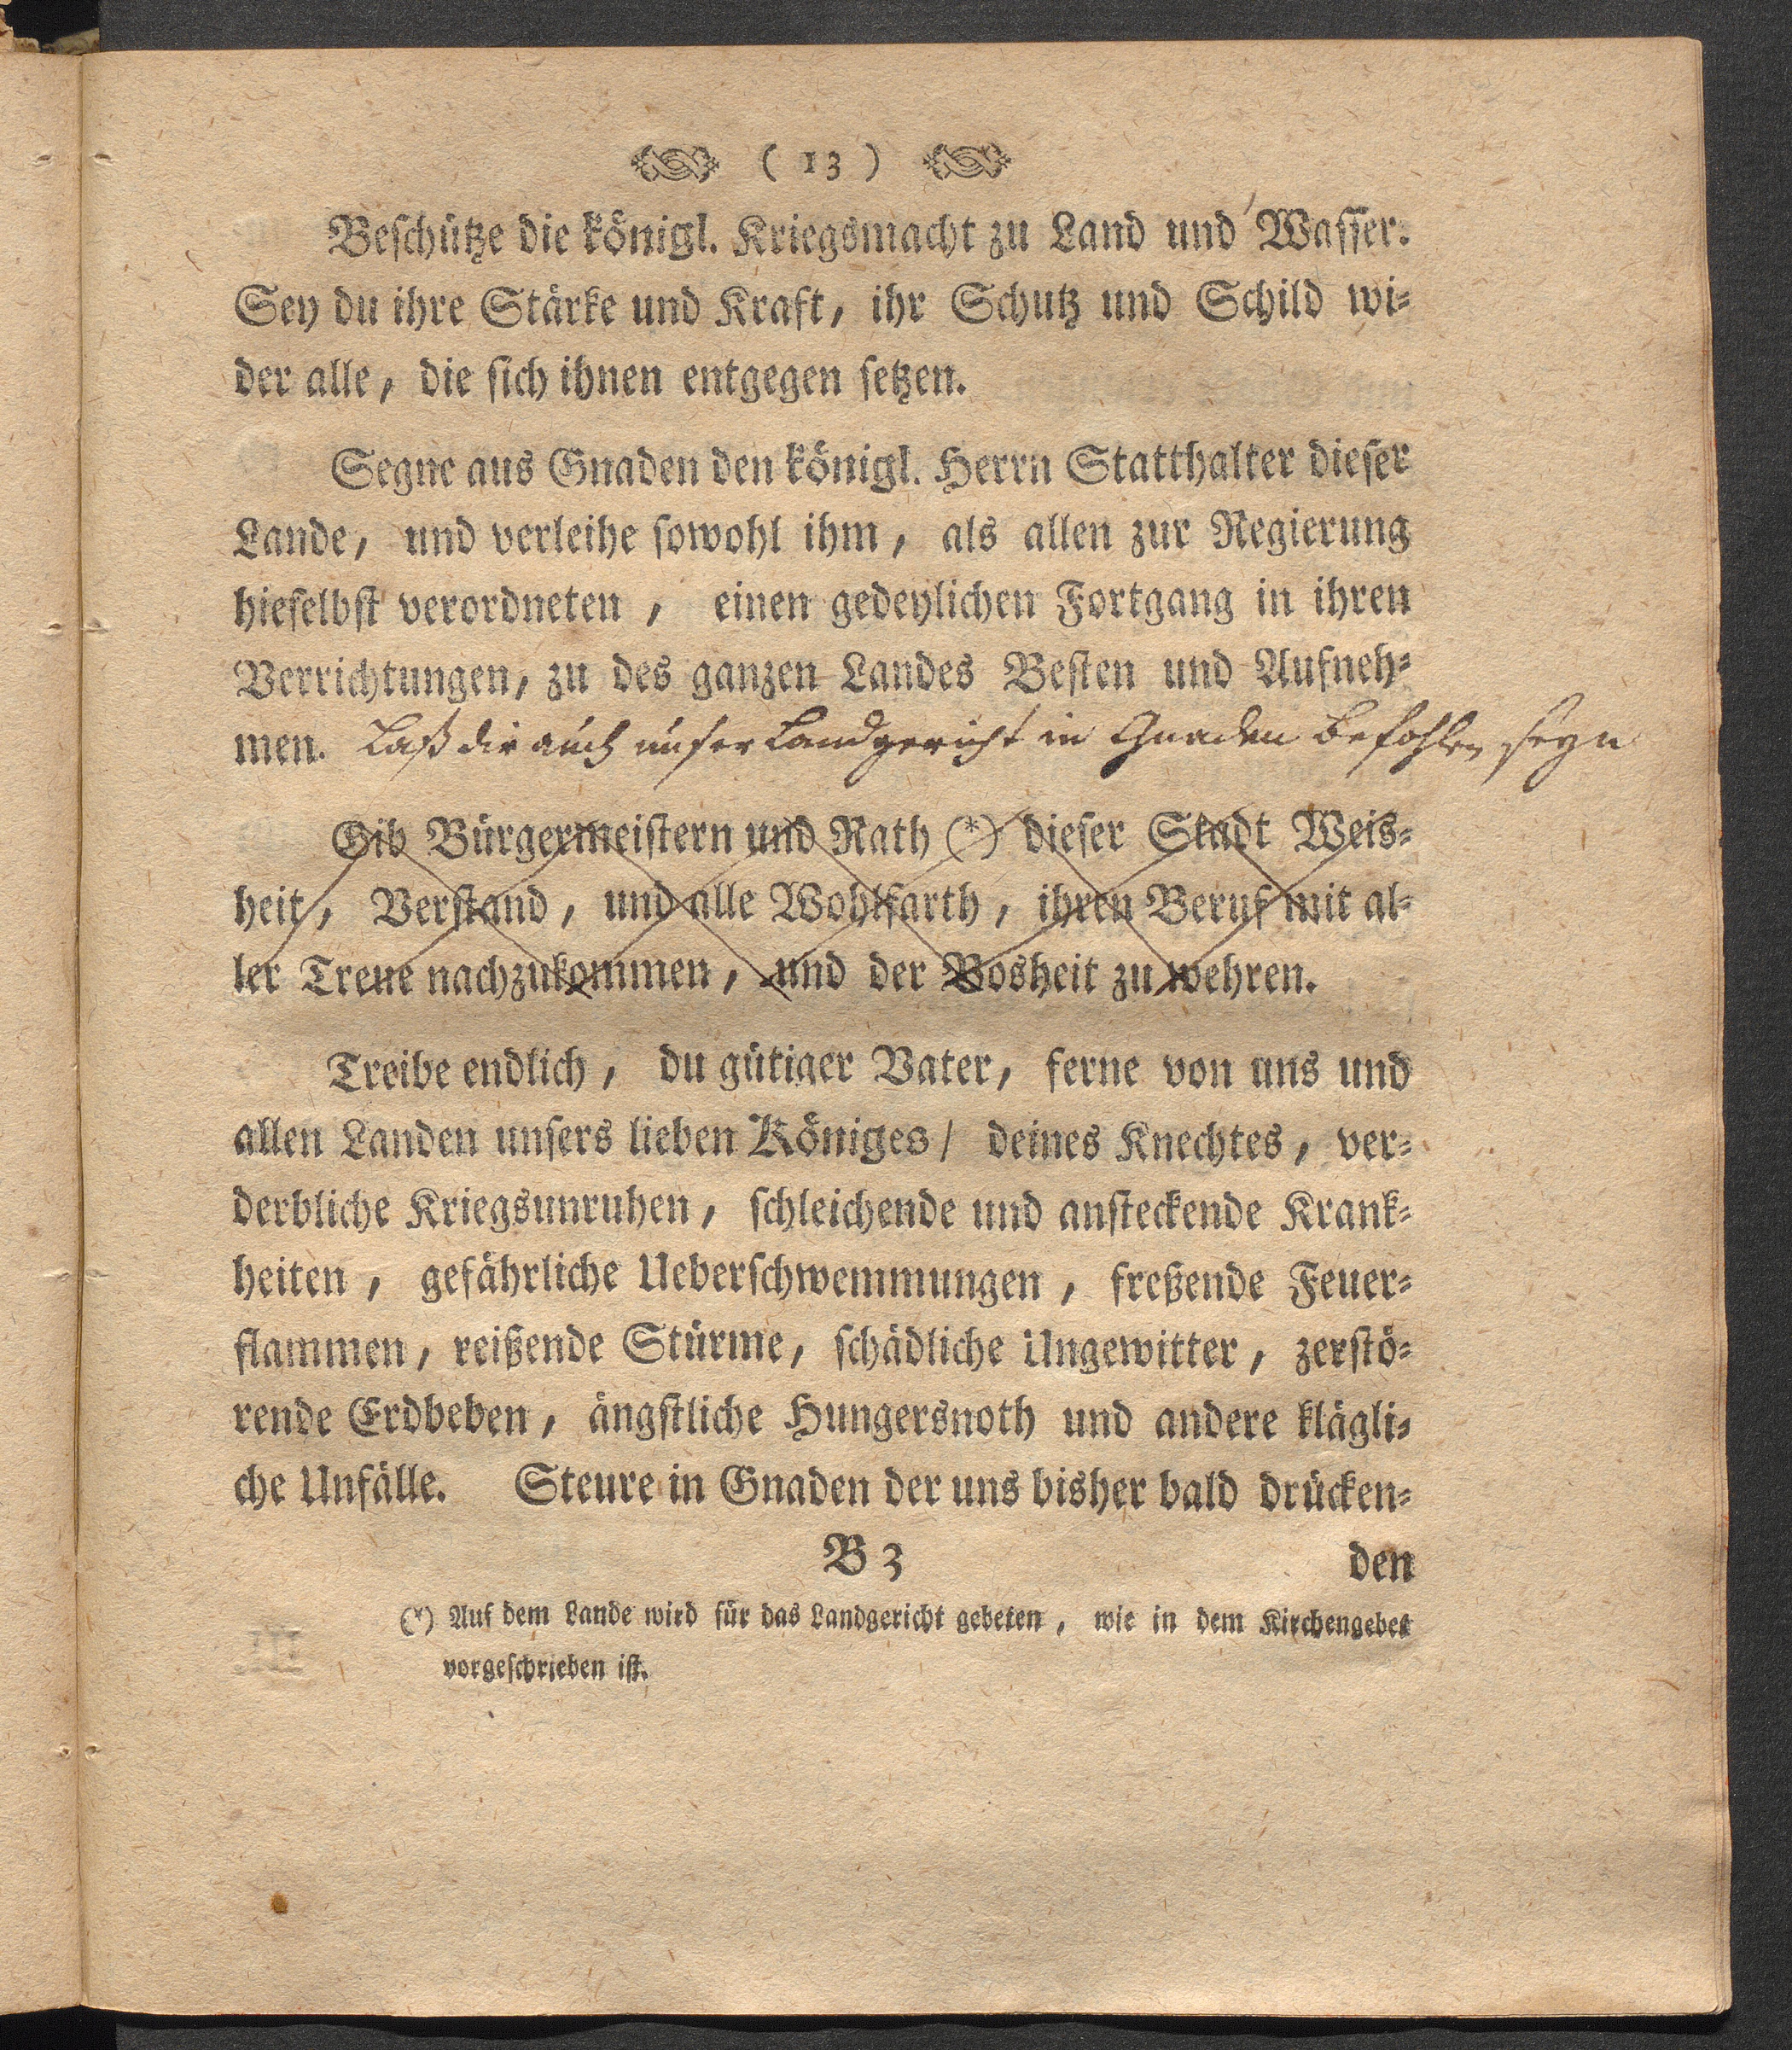 ( 13 )
Beschütze die königl. Kriegsmacht zu Land und Wasser.
Sey du ihre Stärke und Kraft, ihr Schutz und Schild wi-
der alle, die sich ihnen entgegen setzen.
Segne aus Gnaden den königl. Herrn Statthalter dieser
Lande, und verleihe sowohl ihm, als allen zur Regierung
hieselbst verordneten, einen gedeylichen Fortgang in ihren
Verrichtungen, zu des ganzen Landes Besten und Aufneh-
men. Laß dir auch unser Landgericht in Gnaden befohlen seyn
Gib Bürgermeistern und Rath (*) dieser Stadt Weis-
heit, Verstand, und alle Wohlfarth, ihren Beruf mit al-
ler Treue nachzukommen, und der Bosheit zu wehren.
Treibe endlich, du gütiger Vater, ferne von uns und
allen Landen unsers lieben Königes/ deines Knechtes, ver-
derbliche Kriegsunruhen, schleichende und ansteckende Krank-
heiten, gefährliche Ueberschwemmungen, freßende Feuer-
flammen, reißende Stürme, schädliche Ungewitter, zerstö-
rende Erdbeben, ängstliche Hungersnoth und andere klägli-
che Unfälle. Steure in Gnaden der uns bisher bald drücken-
B 3 den
(*) Auf dem Lande wird für das Landgericht gebeten, wie in dem Kirchengebet
vorgeschrieben ist.